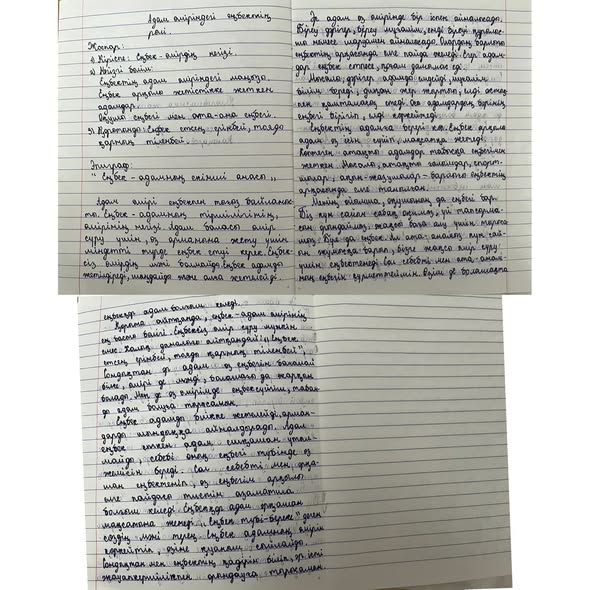 Адам өміріндегі еңбектің
рөлі.
Жоспар:
1) Кіріспе: Еңбек - өмірдің негізі.
2) Негізгі бөлім:
Еңбектің адам өміріндегі маңызы.
Еңбек арқылы жетістікке жеткен
адамдар.
Оқушы еңбегі мен ата-ана еңбегі.
3) Қорытынды: Еңбек етсең ерінбей, тояды
қарның тіленбей.
Эпиграф:
"Еңбек - адамның екінші анасы"
Адам өмірі еңбекпен тығыз байланыс-
ты. Еңбек - адамның тіршілігінің,
өмірінің негізі. Адам баласы өмір
сүру үшін, өз арманына жету үшін
міндетті түрде еңбек етуі керек. Еңбек-
сіз өмірдің мәні болмайды. Еңбек адамды
жетілдіреді, шыңдайды және алға жетелейді.
Әр адам өз өмірінде бір іспен айналысады.
Біреу дәрігер, біреу мұғалім, енді біреу құрылыс-
шы немесе шаруамен айналысады. Олардың барлығы
еңбектің арқасында елге пайда әкеледі. Егер адам-
дар еңбек етпесе, қоғам дамымас еді.
Мысалы, дәрігер адамды емдейді, мұғалім
білім береді, диқан жер жыртып, елді астық-
пен қамтамасыз етеді. Осы адамдардың бәрінің
еңбегі бірігіп, елді көркейтеді.
Еңбектің адамға берері көп. Еңбек арқылы
адам өз ісін сүйіп, мақсатқа жетеді.
Көптеген атақты адамдар табысқа еңбегімен
жеткен. Мысалы, атақты ғалымдар, спорт-
шылар, ақын-жазушылар - барлығы еңбектің
арқасында елге танылған.
Менің ойымша, оқушының да еңбегі бар.
Біз күн сайын сабақ оқимыз, үй тапсырма-
сын орындаймыз, жақсы баға алу үшін тырыса-
мыз. Бұл да еңбек. Ал ата-анамыз күн сай-
ын жұмысқа барып, бізге жақсы өмір сүру
үшін еңбектенеді. Сол себепті мен ата-анам-
ның еңбегін құрметтеймін. Өзім де болашақта
еңбекқор адам болғым келеді.
Қорыта айтқанда, еңбек - адам өмірінің
ең басты байлығы. Еңбексіз өмір сүру мүмкін
емес. Халық даналығы айтқандай: "Еңбек
етсең ерінбей, тояды қарның тіленбей",
Сондықтан әр адам өз еңбегін бағалай
білсе, өмірі де мәнді, болашағы да жарқын
болады. Мен де өз өмірімде еңбексүйгіш, табан-
ды адам болуға тырысамын.
Еңбек адамды биікке жетелейді, арман-
дарды шындыққа айналдырады. Адам
еңбек еткен адам ешқашан ұтыл-
майды, себебі оның еңбегі түбінде өз
жемісін береді. Сол себепті мен әрқа-
шан еңбектеніп, өз еңбегім арқылы
елге пайдасы тиетін азаматша
болғым келеді. Еңбекқор адам әрқашан
мақсатына жетеді. "Еңбек түбі - береке" деген
сөздің мәні терең. Еңбек адамның өмірін
көркейтіп, өзіне қуаныш сыйлайды.
Сондықтан мен еңбектің қадірін біліп, әр істі
жауапкершілікпен орындауға тырысамын.